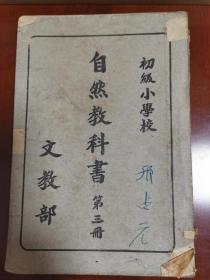 初級小學校
自然教科書 第三冊
文教部